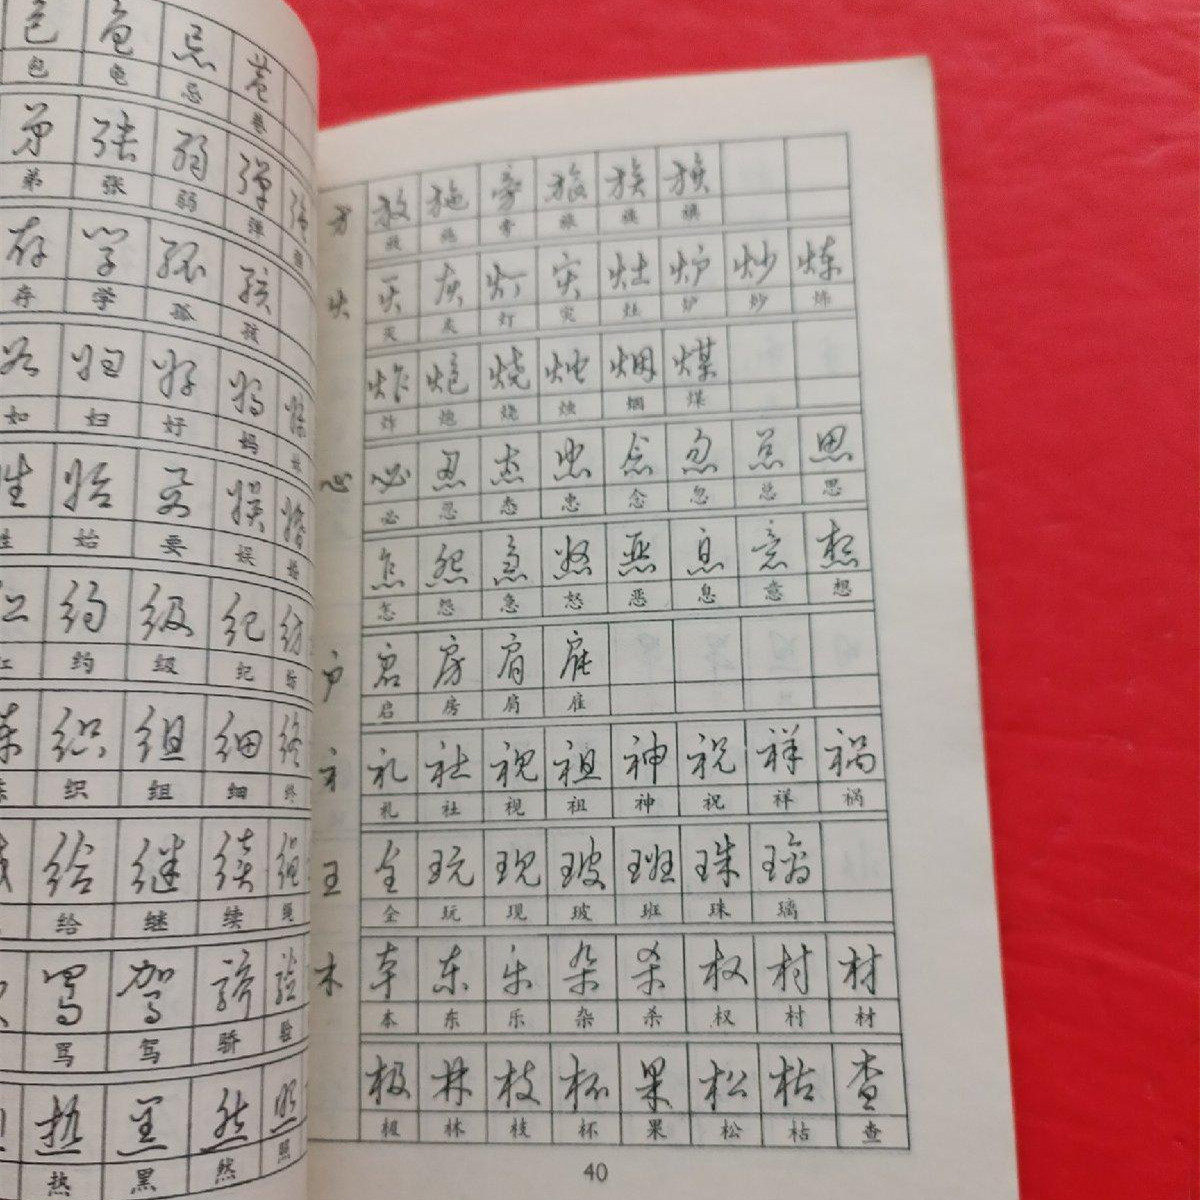 包 龟 忌 巷
包 龟 忌 巷
弟 张 弱 弹 强
弟 张 弱 弹 强
存 学 孤 孩
存 学 孤 孩
如 妇 好 妈
如 妇 好 妈
姓 始 要 娱 婚
姓 始 要 娱 婚
红 约 级 纪 纺
红 约 级 纪 纺
练 织 组 细 终
练 织 组 细 终
给 继 续 绳
给 继 续 绳
骂 驾 骄 验
骂 驾 骄 验
热 黑 然 照
热 黑 然 照
方 放 施 旁 旅 族 旗
放 施 旁 旅 族 旗
火 灭 灰 灯 灾 灶 炉 炒 炼
灭 灰 灯 灾 灶 炉 炒 炼
炸 炮 烧 烛 烟 煤
炸 炮 烧 烛 烟 煤
心 必 忍 态 忠 念 忽 总 思
必 忍 态 忠 念 忽 总 思
怎 怨 急 怒 恶 息 意 想
怎 怨 急 怒 恶 息 意 想
户 启 房 肩 雇
启 房 肩 雇
礻 礼 社 视 祖 神 祝 祥 祸
礼 社 视 祖 神 祝 祥 祸
王 全 玩 现 玻 班 珠 璃
全 玩 现 玻 班 珠 璃
木 本 东 乐 杂 杀 权 村 材
本 东 乐 杂 杀 权 村 材
极 林 枝 杯 果 松 枯 查
极 林 枝 杯 果 松 枯 查
40